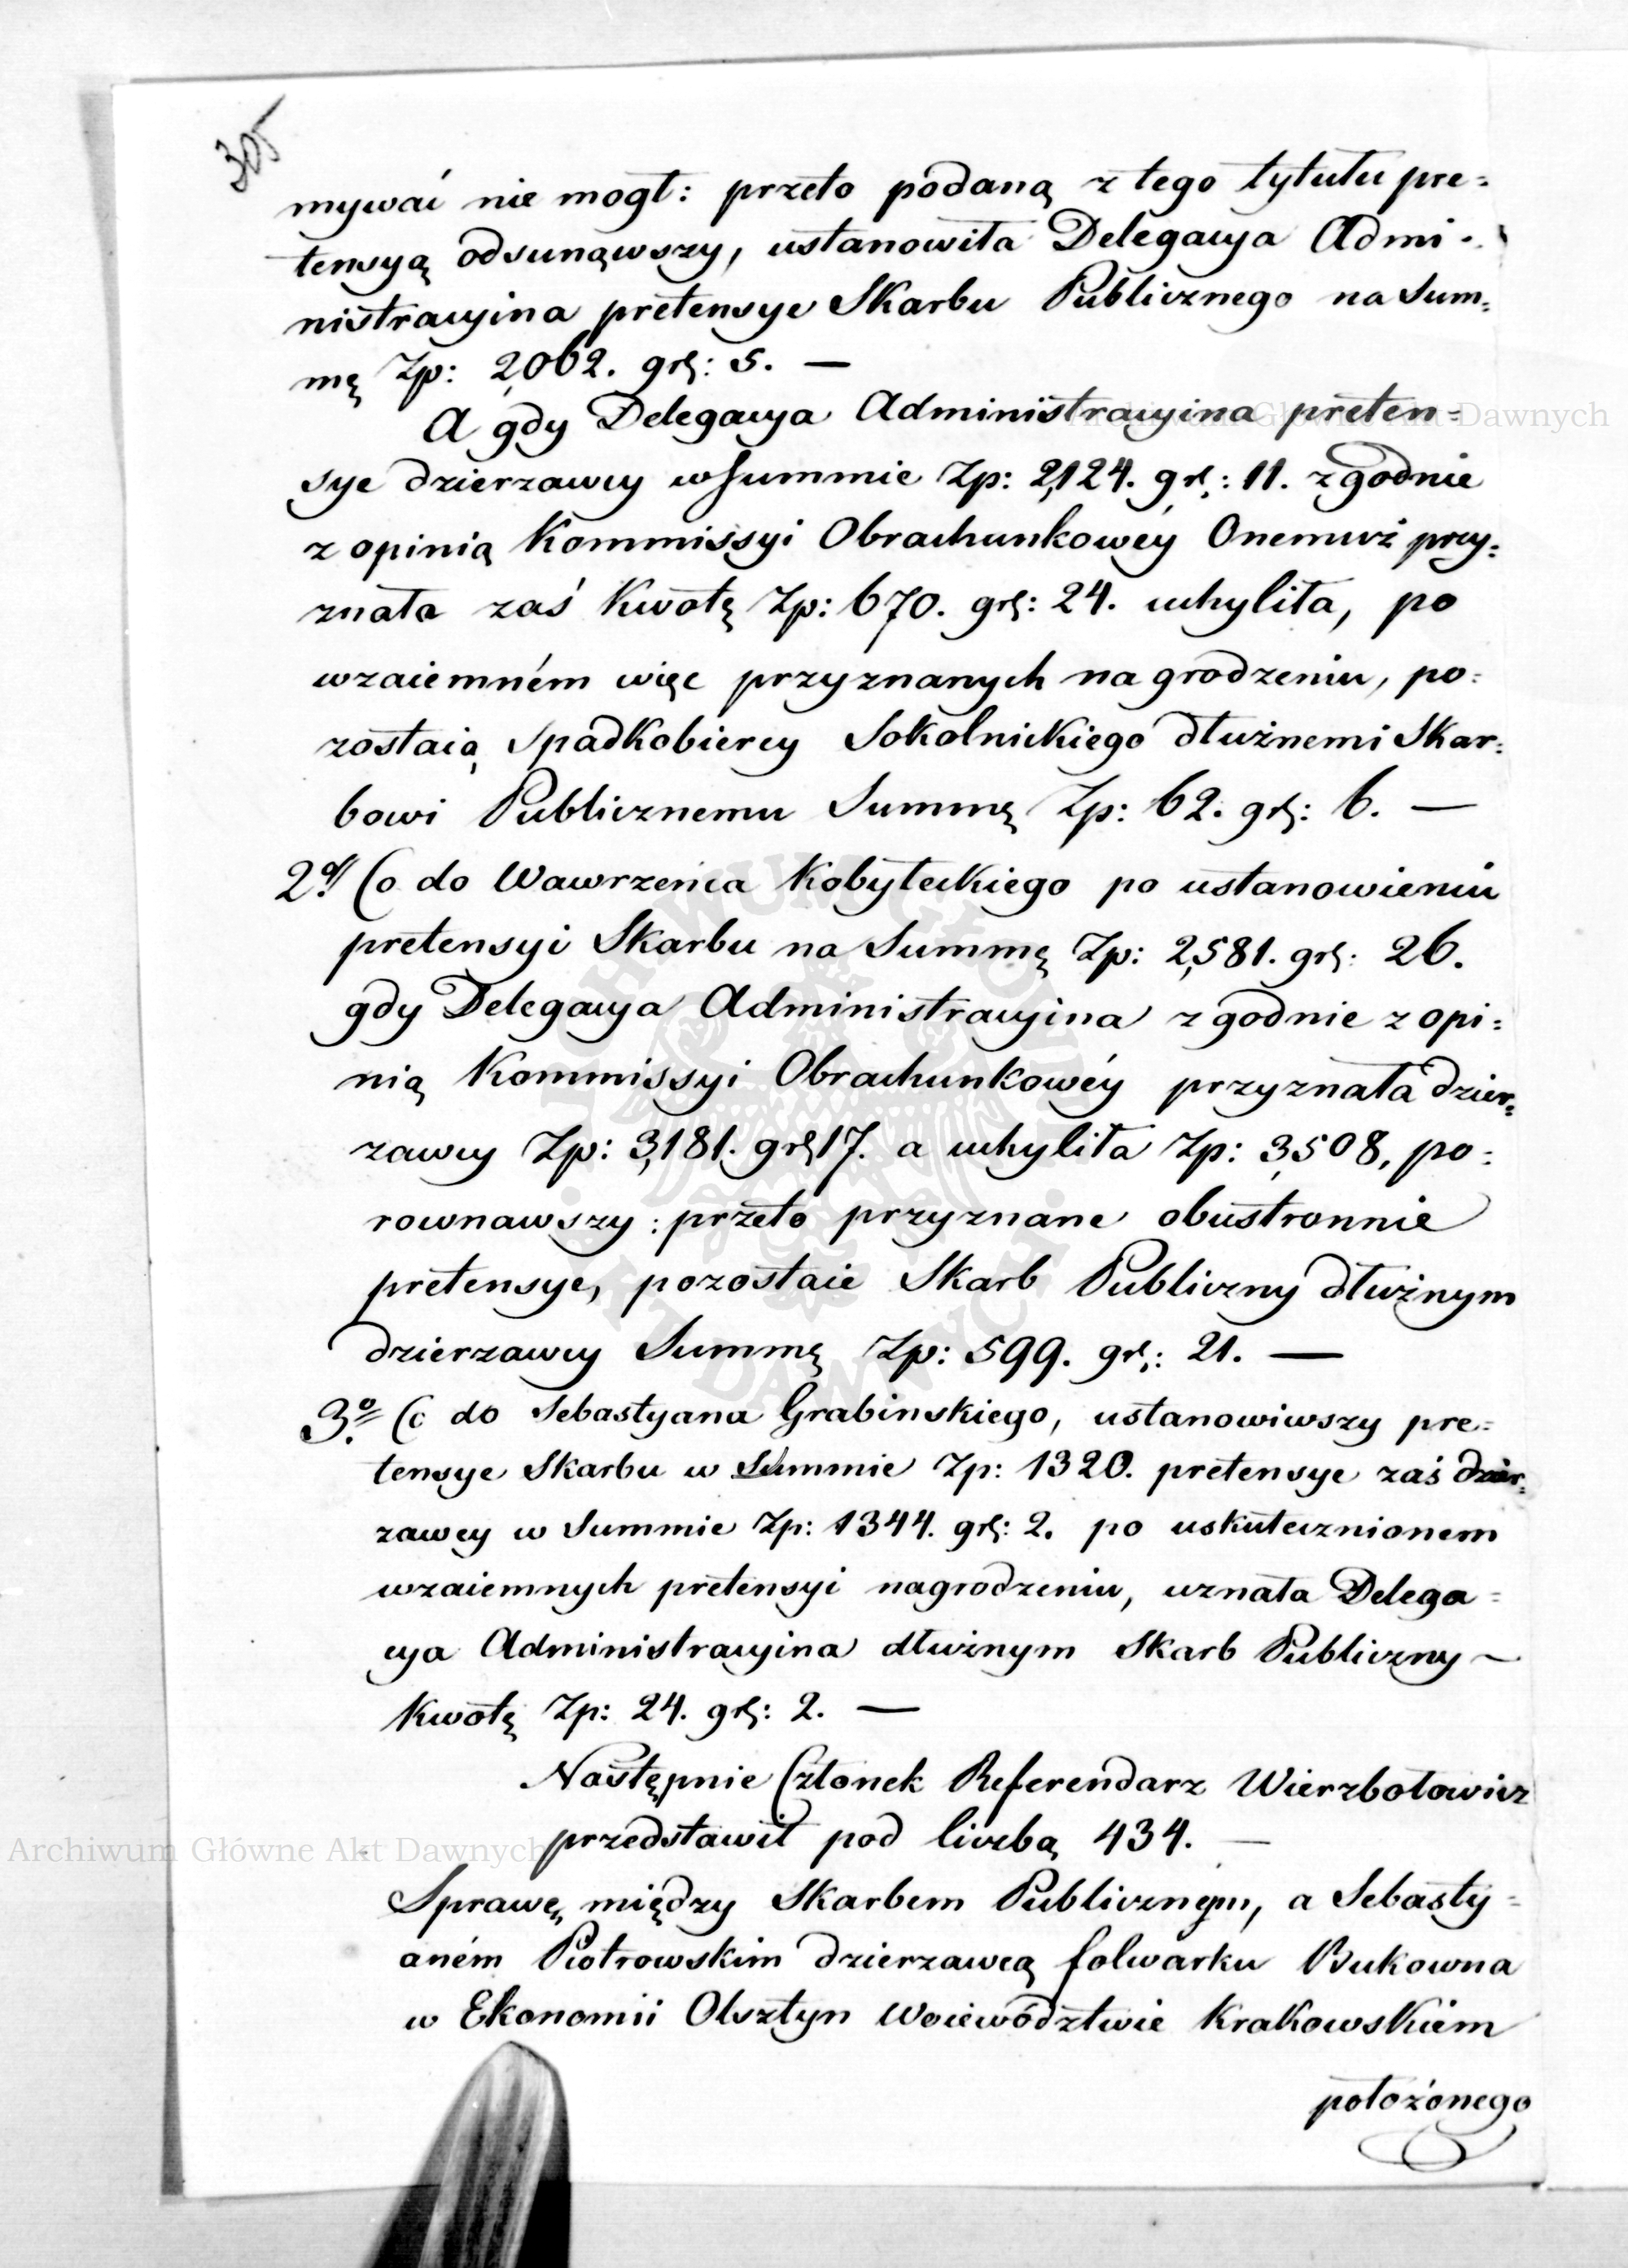 305
mywać nie mogł: przeto podaną z tego tytułu pre=
tensyą odsunąwszy, ustanowiła Delegacya Admi-
nistracyina pretensye Skarbu Publicznego na Sum=
mę Zp: 2,062. gr: 5. —
A gdy Delegacya Administracyina preten=
sye dzierzawcy w Summie Zp: 2,124. gr: 11. zgodnie
z opinią Kommissyi Obrachunkowéy Onemuż przy=
znała zaś Kwotę Zp: 670. gr: 24. uchyliła, po
wzaiemném więc przyznanych nagrodzeniu, po=
zostaią Spadkobiercy Sokolnickiego dłużnemi Skar=
bowi Publicznemu Summę Zp: 62. gr: 6. —
2o Co do Wawrzeńca Kobyłeckiego po ustanowieniu
pretensyi Skarbu na Summę Zp: 2,581. gr: 26.
gdy Delegacya Administracyina zgodnie z opi=
nią Kommissyi Obrachunkowéy przyznała dzier=
zawcy Zp: 3,181. gr 17. a uchyliła Zp: 3,508, po=
rownawszy: przeto przyznane obustronnie
pretensye, pozostaie Skarb Publiczny dłużnym
dzierzawcy Summę Zp: 599. gr: 21. —
3o Co do Sebastyana Grabinskiego, ustanowiwszy pre=
tensye Skarbu w Summie Zp: 1320. pretensye zaś dzier=
zawcy w Summie Zp: 1344. gr: 2. po uskutecznionem
wzaiemnych pretensyi nagrodzeniu, uznała Delega=
cya Administracyina dłużnym Skarb Publiczny ~
Kwotę Zp: 24. gr: 2. —
Następnie Członek Referendarz Wierzbołowicz
przedstawił pod liczbą 434. —
Sprawę między Skarbem Publicznym, a Sebasty=
aném Piotrowskim dzierzawcą folwarku Bukowna
w Ekonomii Olsztyn Woiewództwie Krakowskiem
położonego
Archiwum Główne Akt Dawnych
Archiwum Główne Akt Dawnych
ARCHIWUM GŁÓWNE AKT DAWNYCH